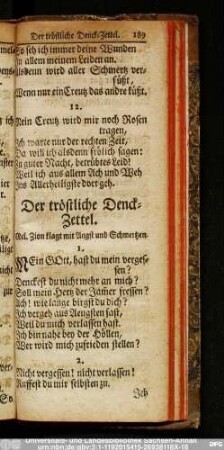 Der tröstliche Denck-Zettel. 189
So seh ich immer deine Wunden
in allem meinem Leiden an.
Alsdenn wird aller Schmertz ver-
süßt,
Wenn nur ein Creutz das andre küßt.
12.
Mein Creutz wird mir noch Rosen
tragen,
Ich warte nur der rechten Zeit,
Da will ich alsdenn frölich sagen:
Zu guter Nacht, betrübtes Leid!
Weil ich aus allem Ach und Weh
Ins Allerheiligste dort geh.
Der tröstliche Denck-
Zettel.
Mel. Zion klagt mit Angst und Schmertzen.
1.
MEin GOtt, hast du mein verges-
sen?
Denckest du nicht mehr an mich?
Soll mein Hertz der Jam̃er fressen?
Ach! wie lange birgst du dich?
Ich vergeh aus Aengsten fast,
Weil du mich verlassen hast.
Ich bin nahe bey der Höllen,
Wer wird mich zufrieden stellen?
2.
Nicht vergessen! nicht verlassen!
Ruffest du mir selbsten zu.
Ich
Universitäts- und Landesbibliothek Sachsen-Anhalt